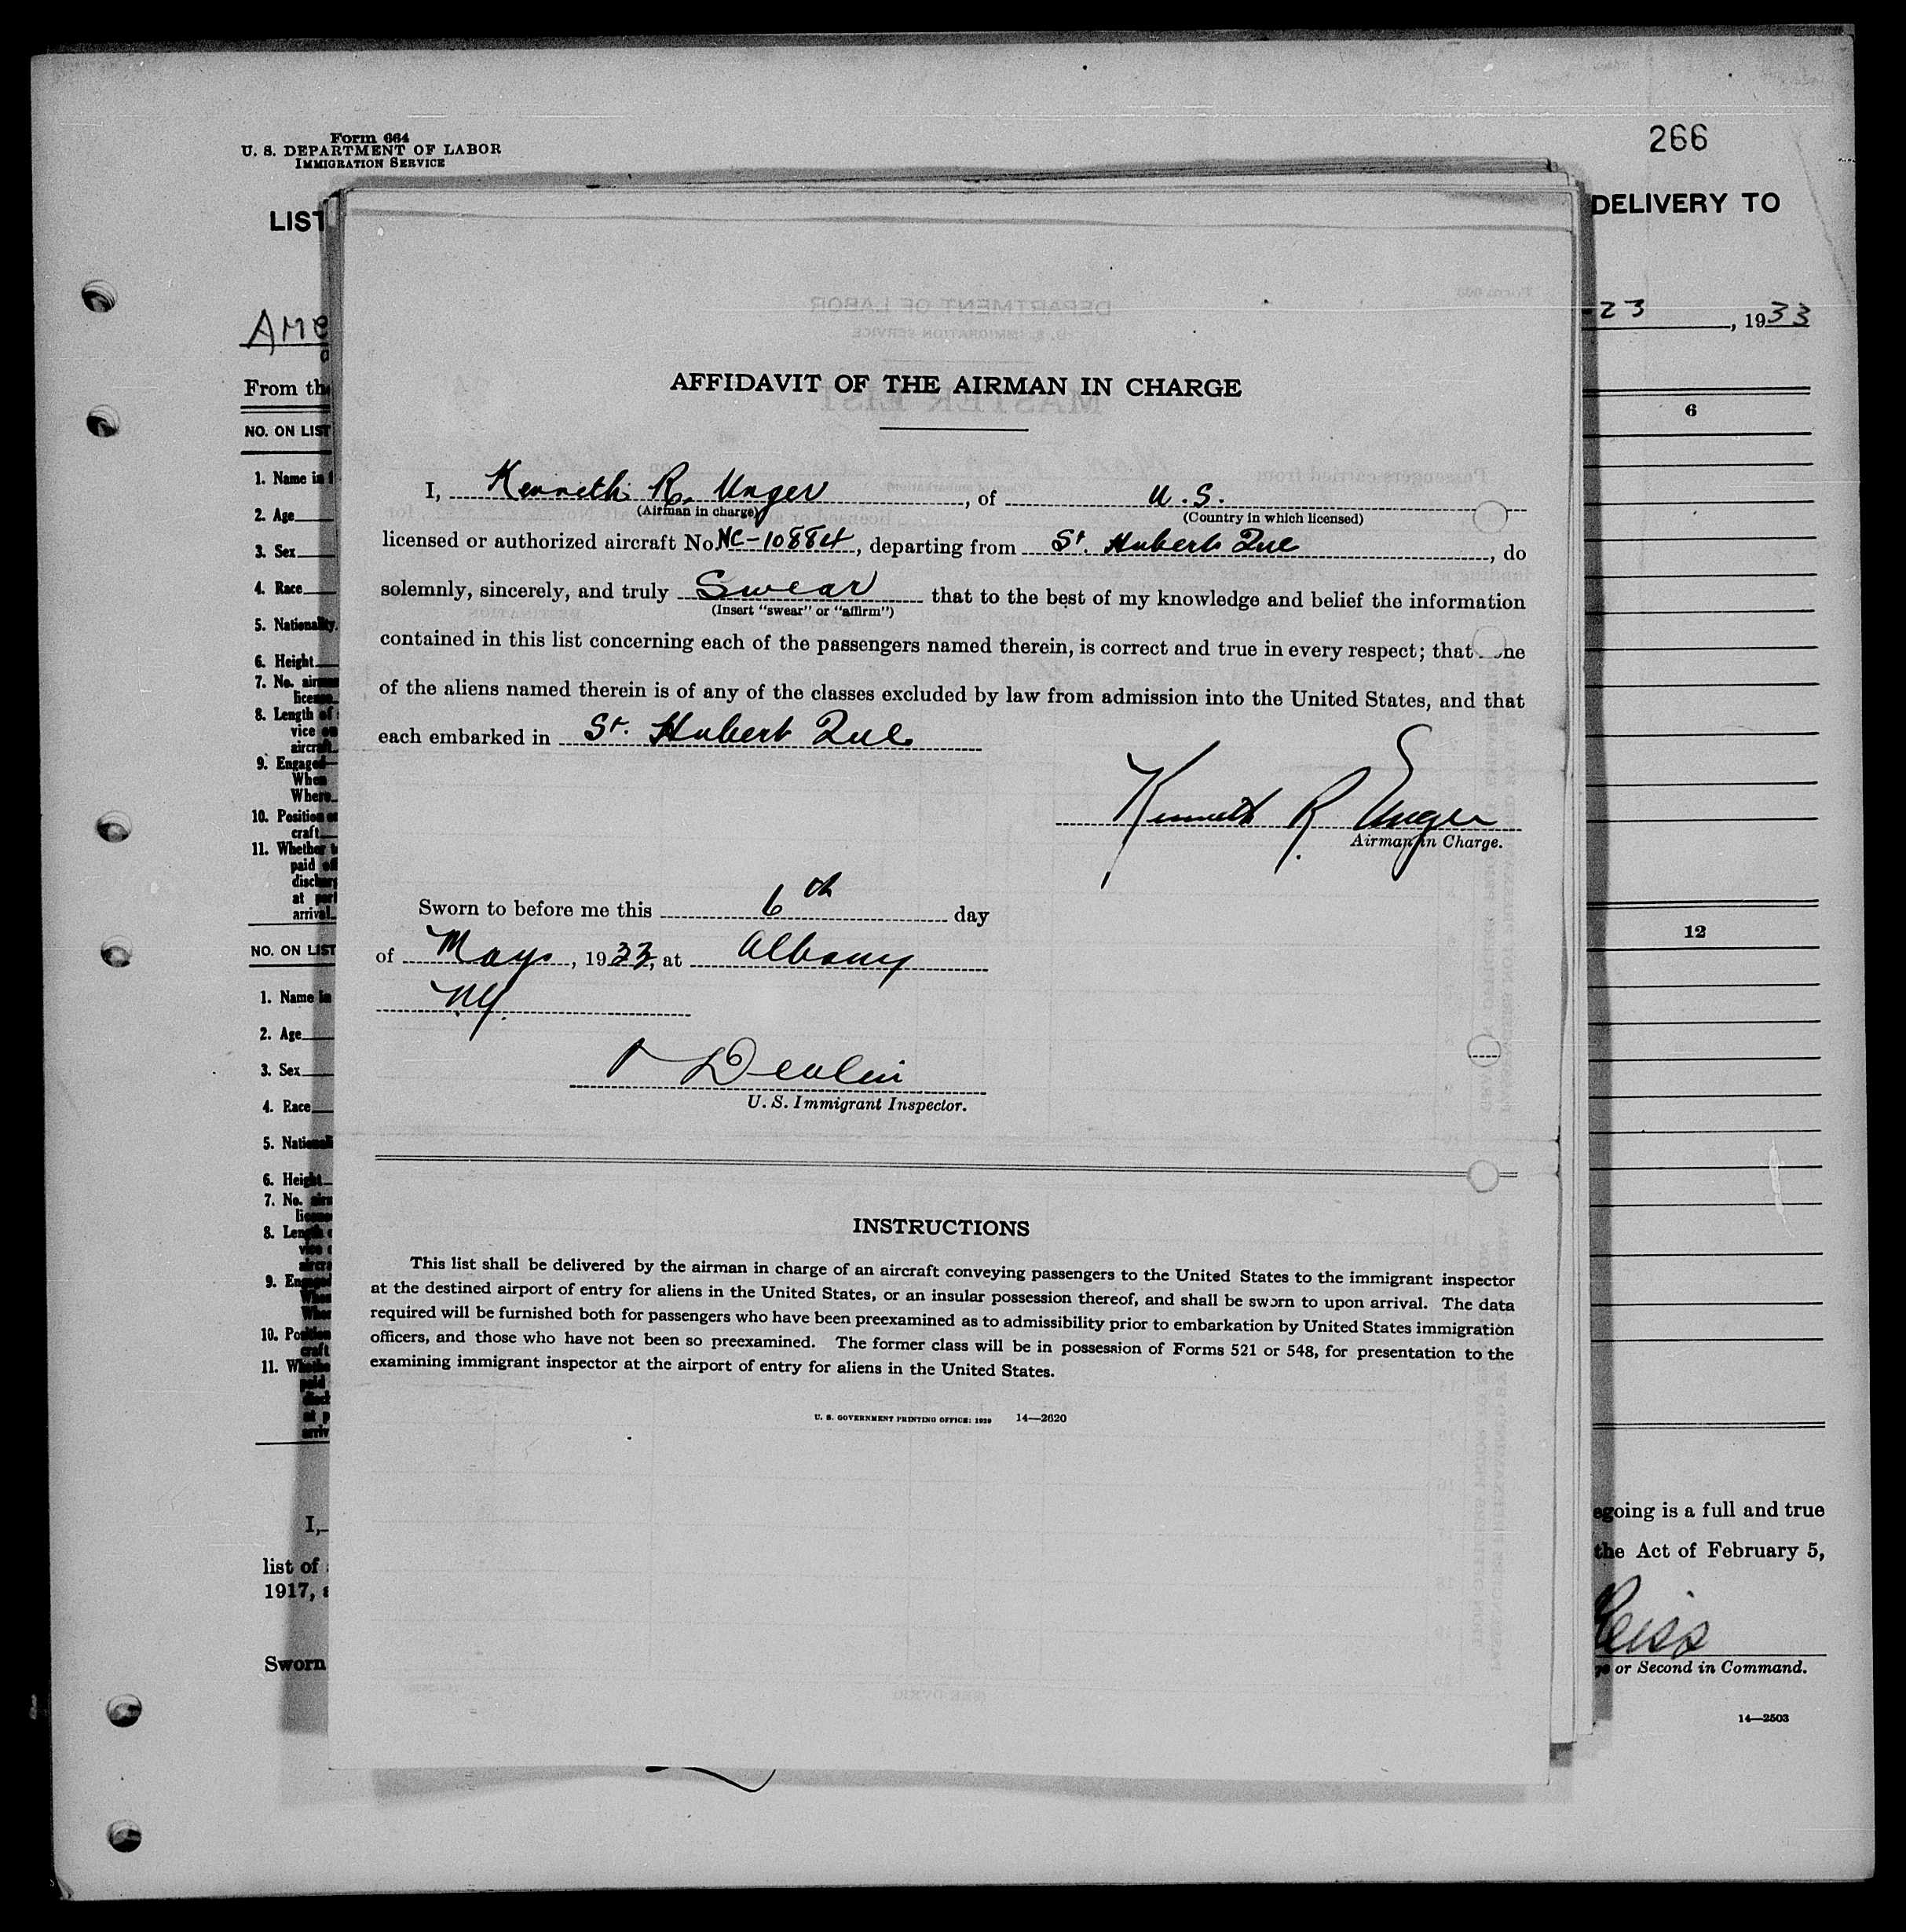 Form 664
U. S. DEPARTMENT OF LABOR
IMMIGRATION SERVICE
266
LIST
DELIVERY TO
AME
23, 1933
From the
NO. ON LIST
6
1. Name in
2. Age
3. Sex
4. Race
5. Nationality
6. Height
7. No. airman
license
8. Length of
vice on
aircraft
9. Engaged
When
Where
10. Position
craft
11. Whether
paid
at port
arrival
NO. ON LIST
12
1. Name in
2. Age
3. Sex
4. Race
5. Nationali
6. Height
7. No.
8. Length
9. Engaged
10. Position
craft
11. Whether
paid
at p
arriv
I,
list of
1917,
Sworn
AFFIDAVIT OF THE AIRMAN IN CHARGE
I, Kenneth R. Unger, of U.S.
(Airman in charge) (Country in which licensed)
licensed or authorized aircraft No. NC-10884, departing from St. Hubert Que, do
solemnly, sincerely, and truly Swear that to the best of my knowledge and belief the information
(Insert "swear" or "affirm")
contained in this list concerning each of the passengers named therein, is correct and true in every respect; that ne
of the aliens named therein is of any of the classes excluded by law from admission into the United States, and that
each embarked in St. Hubert Que
Kenneth R Unger
Airman in Charge.
Sworn to before me this 6th day
of May, 1933, at Albany
N.Y.
Devlin
U. S. Immigrant Inspector.
INSTRUCTIONS
This list shall be delivered by the airman in charge of an aircraft conveying passengers to the United States to the immigrant inspector
at the destined airport of entry for aliens in the United States, or an insular possession thereof, and shall be sworn to upon arrival. The data
required will be furnished both for passengers who have been preexamined as to admissibility prior to embarkation by United States immigration
officers, and those who have not been so preexamined. The former class will be in possession of Forms 521 or 548, for presentation to the
examining immigrant inspector at the airport of entry for aliens in the United States.
U. S. GOVERNMENT PRINTING OFFICE: 1929 14—2620
egoing is a full and true
the Act of February 5,
Reiss
or Second in Command.
14—2503